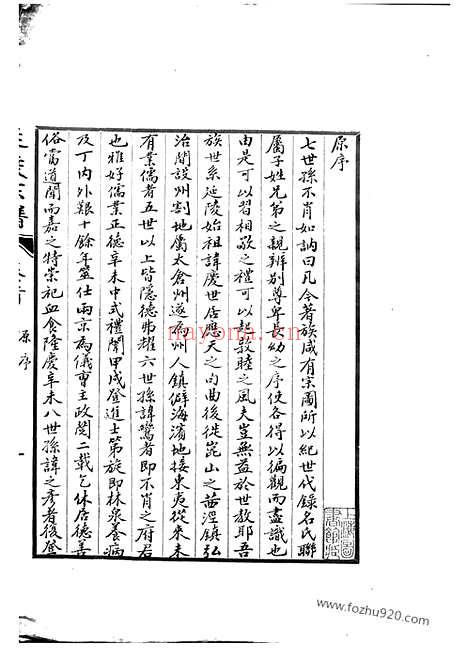 原序
七世孫不肖如訥曰凡今著族咸有宗圖所以紀世代錄名氏聯
屬子姓兄弟之親辨別尊卑長幼之序使各得以徧觀而盡識也
由是可以習相敬之禮可以起敦睦之風夫豈無益於世教耶吾
族世系延陵始祖諱慶世居應天之句曲後徙崑山之茜涇鎮弘
治間設州割地屬太倉州遂為州人鎮僻海濱地接東夷從來未
有業儒者五世以上皆隱德弗耀六世孫諱鸞者即不肖之府君
也雅好儒業正德辛未中式禮闈甲戌登進士第旋即林泉養病
及丁內外艱十餘年筮仕兩京為儀曹主政閱二載乞休居德善
俗當道聞而嘉之特崇祀血食隆慶辛未八世孫諱之彥者後登
原序
上海圖書館藏
nayona.cn
www.fozhu920.com